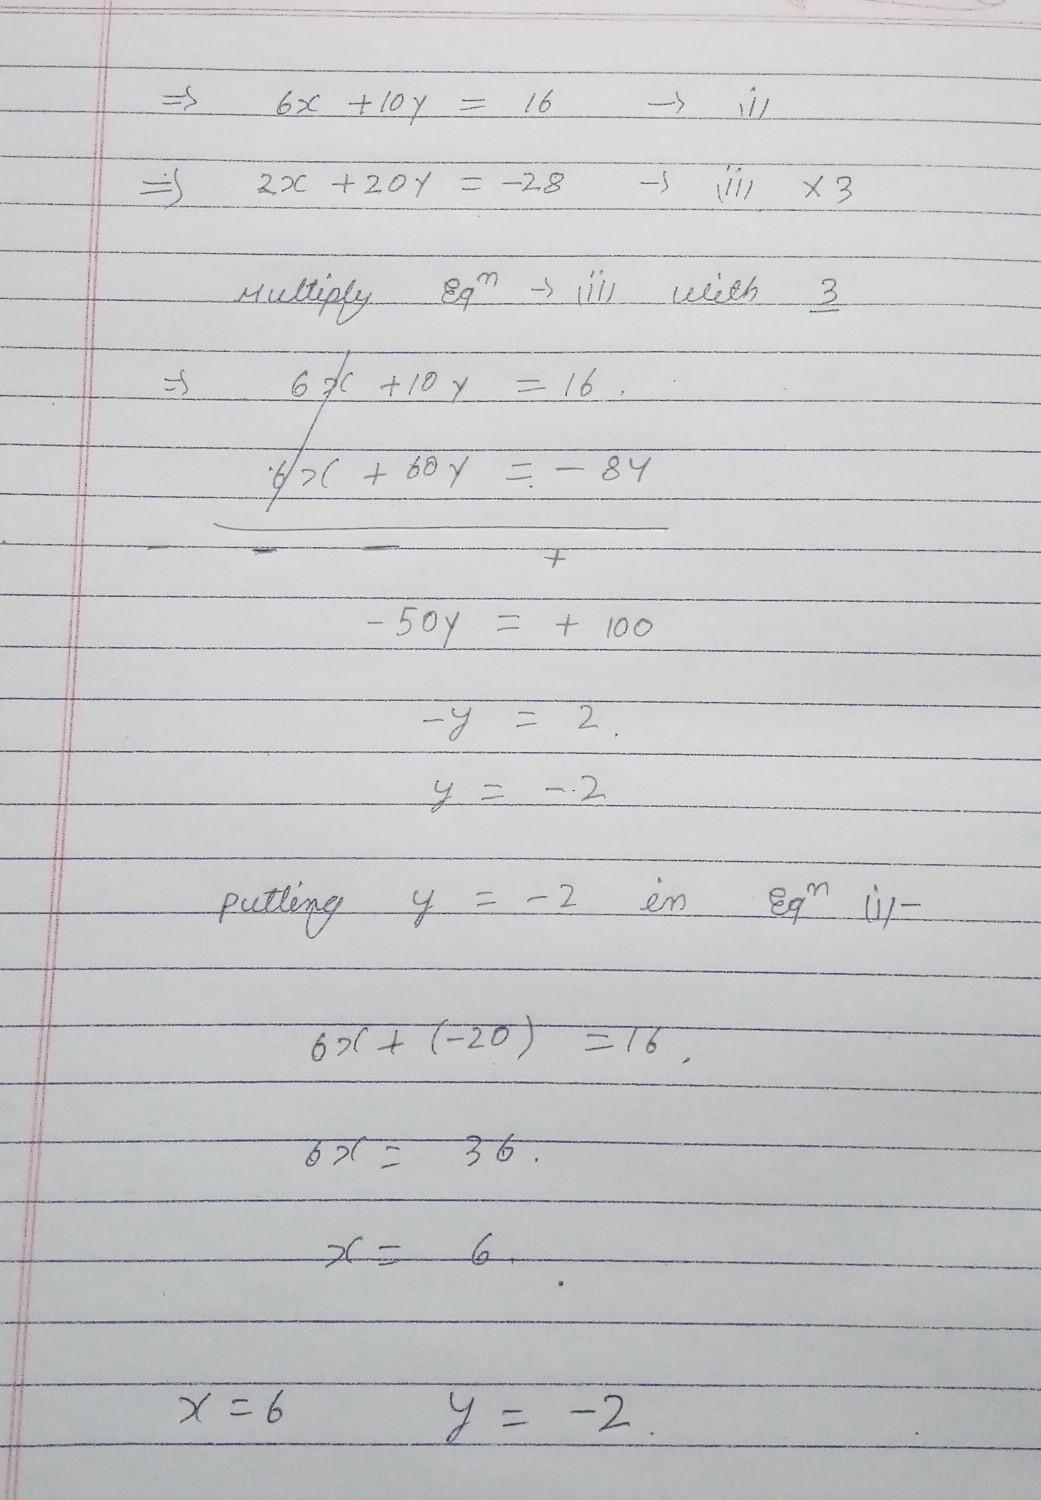 ⇒ 6x + 10y = 16 → (i)
⇒ 2x + 20y = -28 → (ii) × 3
Multiply Eqⁿ → (ii) with 3
⇒ 6x + 10y = 16.
6x + 60y = - 84
- - - +
- 50y = + 100
-y = 2.
y = -2
putting y = -2 in Eqⁿ (i) -
6x + (-20) = 16.
6x = 36.
x = 6.
x = 6 y = -2.